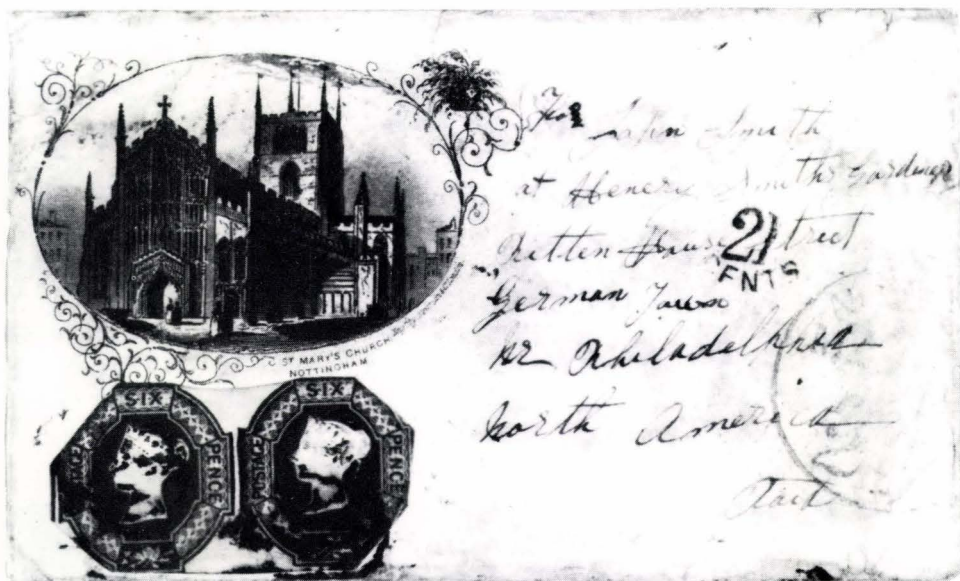 ST MARY'S CHURCH
NOTTINGHAM
SIX
PENCE
POSTAGE
SIX
PENCE
POSTAGE
For John Smith
at Henery Smiths Gardinger
Ritten House Street
German Town
Nr Philadelphia
North America
21
CENTS